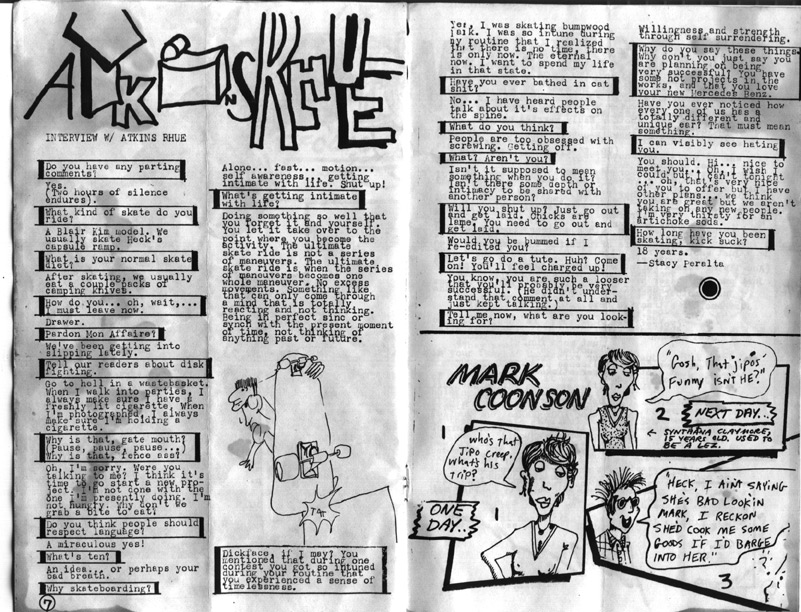 ATKINS RHUE
INTERVIEW W/ ATKINS RHUE
Do you have any parting
comments?
Yes.
(Two hours of silence
endures).
What kind of skate do you
ride?
A Blair Kim model. We
usually skate Heck's
capsule ramp.
What is your normal skate
diet?
After skating, we usually
eat a couple packs of
camping knives.
How do you... oh, wait,...
I must leave now.
Drawer.
Pardon Mon Affaire?
We've been getting into
slipping lately.
Tell our readers about disk
fighting.
Go to hell in a wastebasket.
When I walk into parties, I
always make sure I have a
freshly lit cigarette. When
I'm photographed, I always
make sure I'm holding a
cigarette.
Why is that, gate mouth?
(Pause, pause, pause...)
Why is that, fence ...?
Oh, I'm sorry. Were you
talking to me? I think it's
time to go start a new pro-
ject. I'm not done with the
one I'm presently doing. I'm
not hungry. Why don't we
grab a bite to eat?
Do you think people should
respect language?
A miraculous yes!
What's ten?
An idea... or perhaps your
bad breath.
Why skateboarding?
7
Alone... fast... motion...
self awareness... getting
intimate with life. Shut up!
What's getting intimate
with life?
Doing something so well that
you forget and yourself.
You let it take over to the
point where you become the
activity. The ultimate
skate ride is not a series
of maneuvers. The ultimate
skate ride is when the series
of maneuvers becomes one
whole maneuver. No excess
movements. Something like
that can only come through
a mind that is totally
reacting and not thinking.
Being in perfect sinc or
synch with the present moment
of time, not thinking of
anything past or future.
Dickface, if I may? You
mentioned that during one
contest you got so intuned
during your routine that
you experienced a sense of
timelessness.
Yes, I was skating bumpwood
jalk. I was so intune during
my routine that I realized
that there is no time, there
is only now. The eternal
now. I want to spend my life
in that state.
Have you ever bathed in cat
shit?
No... I have heard people
talk about it's effects on
the spine.
What do you think?
People are too obsessed with
screwing. Getting off.
What? Aren't you?
Isn't it supposed to mean
something when you do it?
Isn't there some depth or
intimacy to be shared with
another person?
Will you shut up? Just go out
and get laid. Chicks are
lame. You need to go out and
get laid.
Would you be bummed if I
re-bottled you?
Let's go do a tute. Huh? Come
on! You'll feel charged up!
You know, you are such a looser
that you'll probably be very
successful! (He didn't under-
stand that comment at all and
just kept talking.)
Tell me now, what are you look-
ing for?
Willingness and strength
through self surrendering.
Why do you say these things?
Why don't you just say you
are planning on being
very successful! You have
some hot projects in the
works, and that you love
your new Mercedes Benz.
Have you ever noticed how
every one of us has a
totally different and
unique ear? That must mean
something.
I can visibly see hating
you.
You should. Hi... nice to
meet you... Oh, I wish I
could, but I can't tonight
... oh, that's very nice
of you to offer but I have
other plans... I think
you are great but we aren't
taking on any new people.
I'm very thirsty for an
art choke soda.
How long have you been
skating, kick suck?
18 years.
—Stacy Peralta
MARK
COONSON
ONE
DAY...
who's that
Jipo creep.
What's his
Trip?
2
NEXT DAY...
"Gosh, That jipos'
Funny isn't He?"
← SYNTHANA CLAYMORE,
15 YEARS OLD. USED TO
BE A LEZ.
"HECK, I AIN'T SAYING
SHE'S BAD LOOKIN
MARK, I RECKON
SHED COOK ME SOME
GOODS IF I'D BARGE
INTO HER."
3